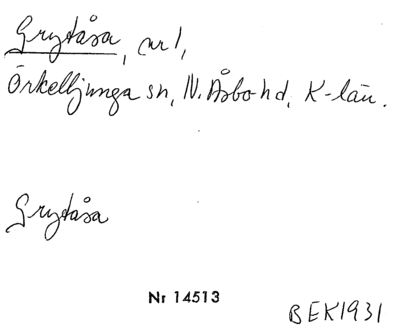 Grytåsa, nr 1,
Örkelljunga sn, N. Åsbo hd, K-län.
Grytåsa
Nr 14513
BEK1931